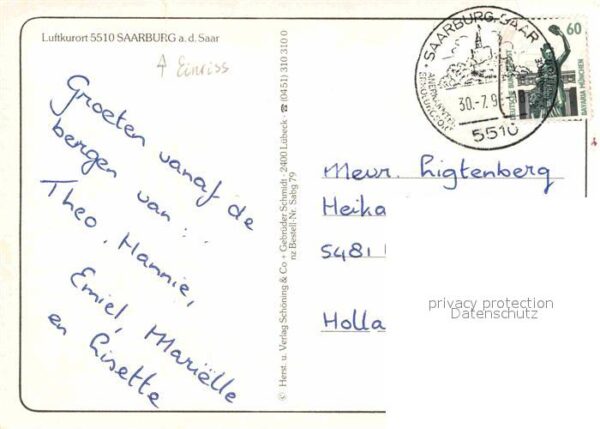 Luftkurort 5510 SAARBURG a. d. Saar
Einriss
Groeten vanaf de
bergen van :
Theo, Hannie,
Emiel, Mariëlle
en Lisette
© Herst. u. Verlag Schöning & Co + Gebrüder Schmidt · 2400 Lübeck · ☎ (0451) 310 310 0
nz Bestell-Nr. Sabg 79
SAARBURG, SAAR
30.-7.9
5510
60
DEUTSCHE BUNDESPOST
BAVARIA MÜNCHEN
Mevr. Ligtenberg
Heika
5481
Holla
privacy protection
Datenschutz